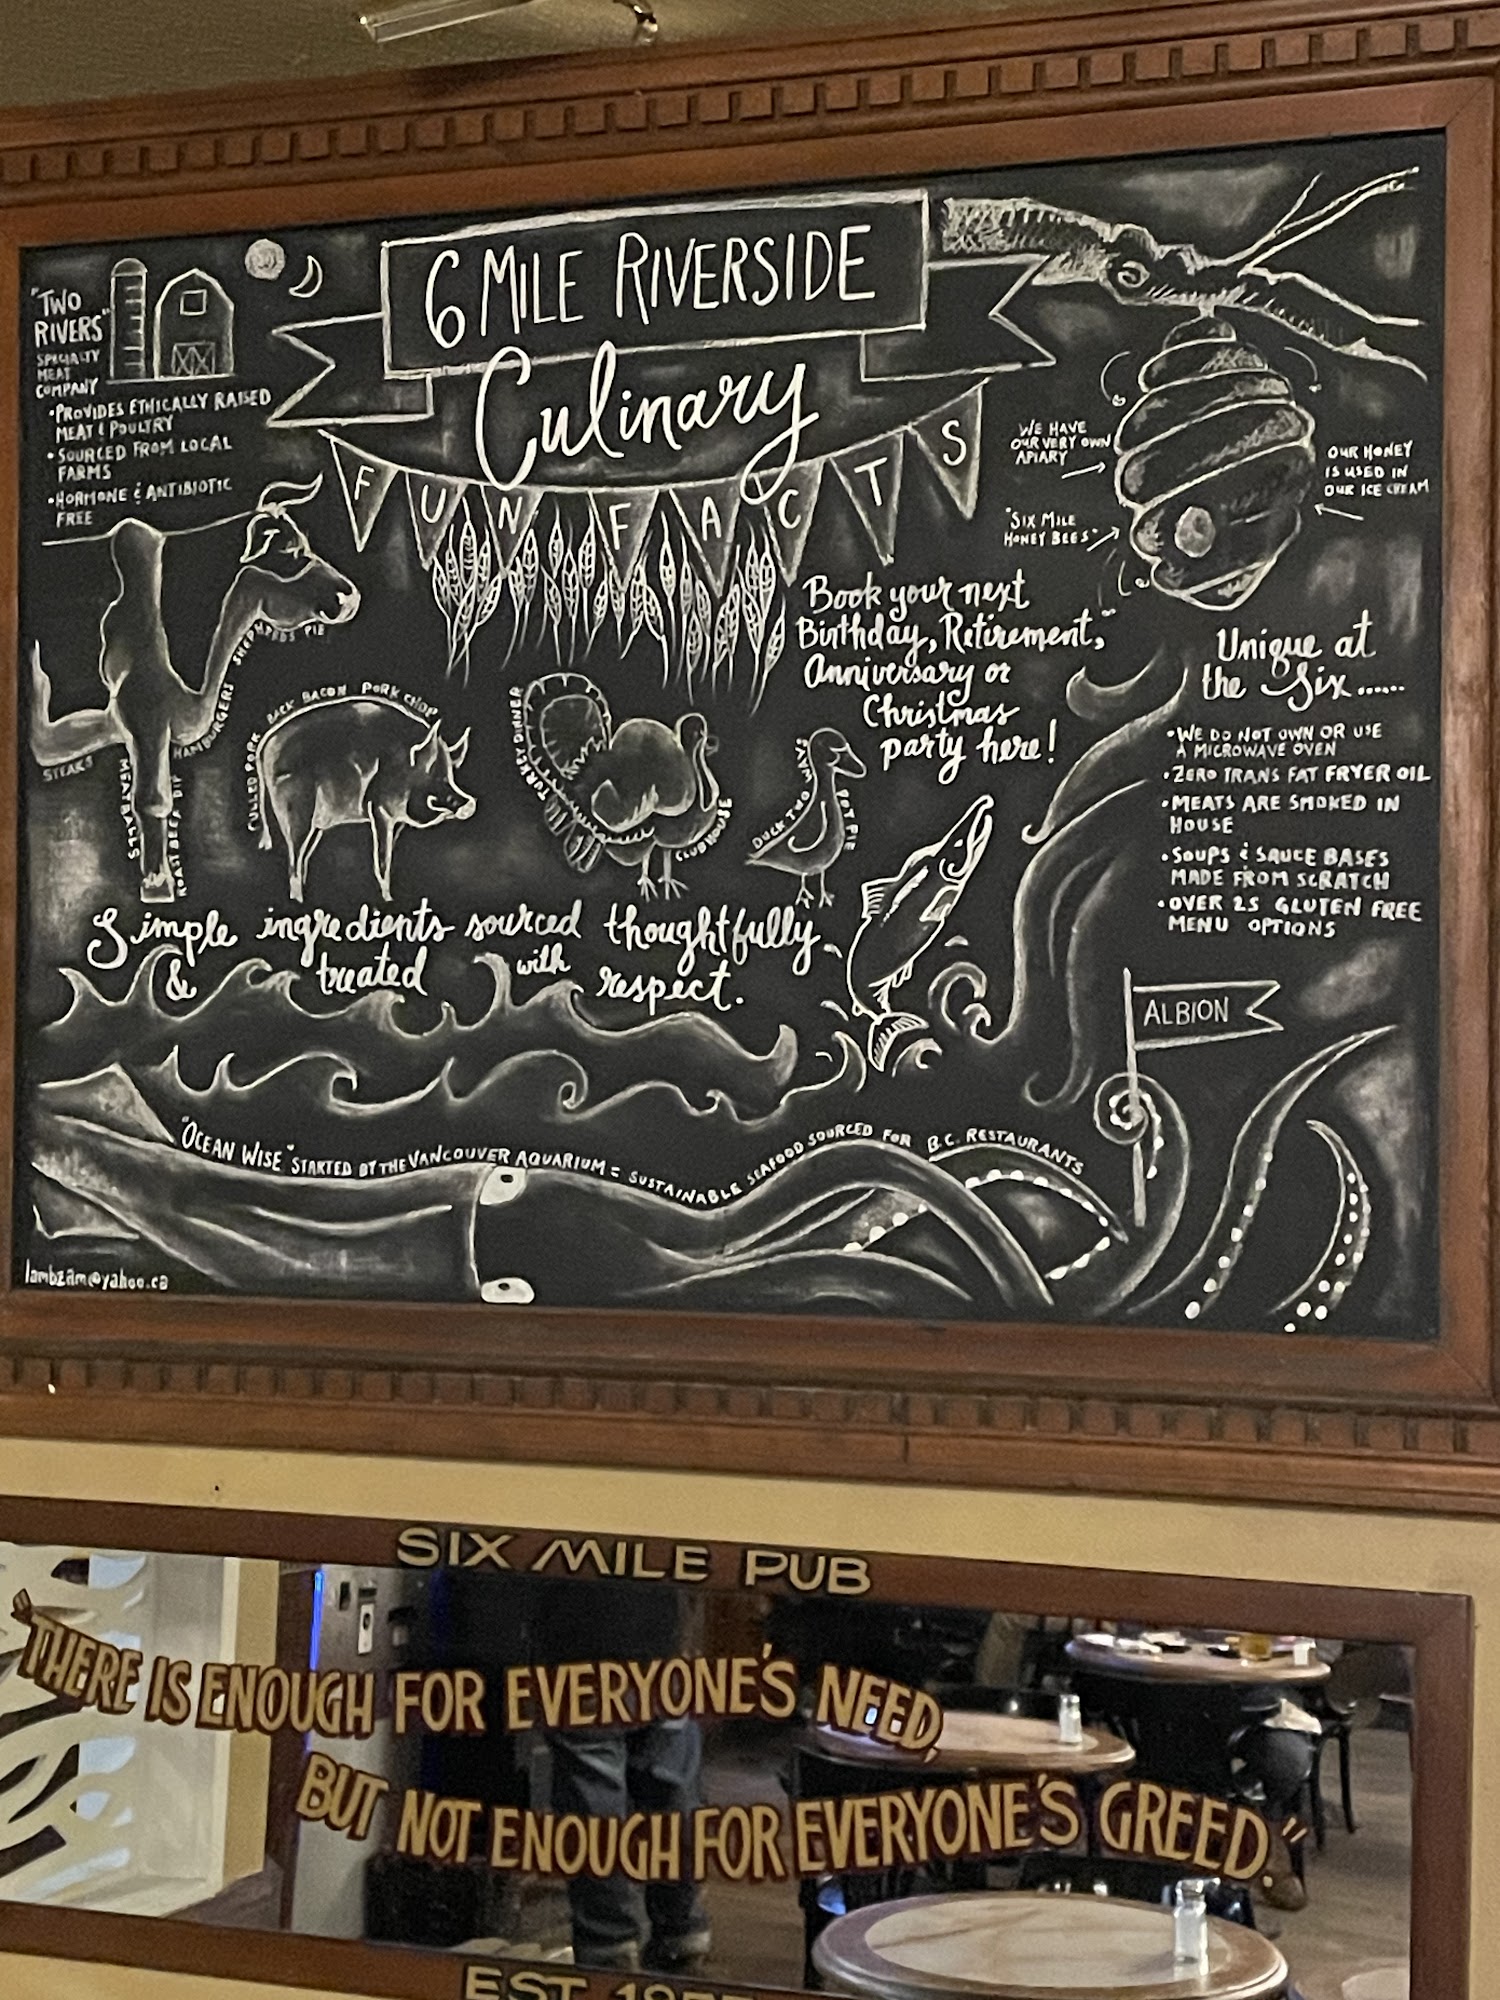 6 MILE RIVERSIDE
Culinary
FUN FACTS
"TWO
RIVERS"
SPECIALTY
MEAT
COMPANY
• PROVIDES ETHICALLY RAISED
MEAT & POULTRY
• SOURCED FROM LOCAL
FARMS
• HORMONE & ANTIBIOTIC
FREE
WE HAVE
OUR VERY OWN
APIARY
OUR HONEY
IS USED IN
OUR ICE CREAM
"SIX MILE
HONEY BEES"
Book your next
Birthday, Retirement,
Anniversary or
Christmas
party here!
Unique at
the Six......
• WE DO NOT OWN OR USE
A MICROWAVE OVEN
• ZERO TRANS FAT FRYER OIL
• MEATS ARE SMOKED IN
HOUSE
• SOUPS & SAUCE BASES
MADE FROM SCRATCH
• OVER 25 GLUTEN FREE
MENU OPTIONS
SHEPHERDS PIE
HAMBURGERS
STEAKS
MEATBALLS
ROAST BEEF DIP
PULLED PORK
BACK BACON
PORK CHOP
TURKEY DINNER
CLUBHOUSE
DUCK TWO WAYS
POT PIE
Simple ingredients sourced thoughtfully
& treated with respect.
ALBION
"OCEAN WISE" STARTED BY THE VANCOUVER AQUARIUM = SUSTAINABLE SEAFOOD SOURCED FOR B.C. RESTAURANTS
lambzam@yahoo.ca
SIX MILE PUB
"THERE IS ENOUGH FOR EVERYONE'S NEED,
BUT NOT ENOUGH FOR EVERYONE'S GREED."
EST